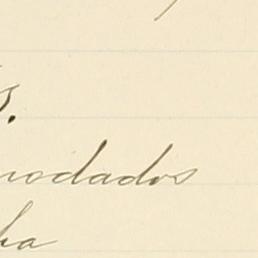 s.
modados
ba